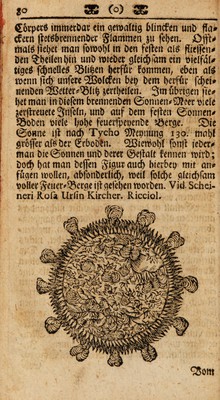 80 (0)
Cörpers immerdar ein gewaltig blincken und fla-
ckern stetsbrennender Flammen zu sehen. Öffte
mals siehet man sowohl in den festen als fliessen-
den Theilen hin und wieder gleichsam ein vielfäl-
tiges schnelles Blitzen herfür kommen, eben als
wenn sich unsere Wolcken bey dem herfür schei-
nenden Wetter-Blitz zertheilen. Im übrigen sie-
het man in diesem brennenden Sonnen-Meer viele
zerstreuete Insuln, und auf dem festen Sonnen-
Boden viele hohe feuerspeyende Berge. Die
Sonne ist nach Tycho Meynung 139. mahl
grösser als der Erboden. Wiewohl sonst jeder-
man die Sonnen und derer Gestalt kennen wird;
doch hat man dessen Figur auch hierbey mit an-
fügen wollen, absonderlich, weil solche gleichsam
voller Feuer-Berge ist gesehen worden. Vid Schei-
neri Rosa Ursin Kircher. Ricciol.
Vom